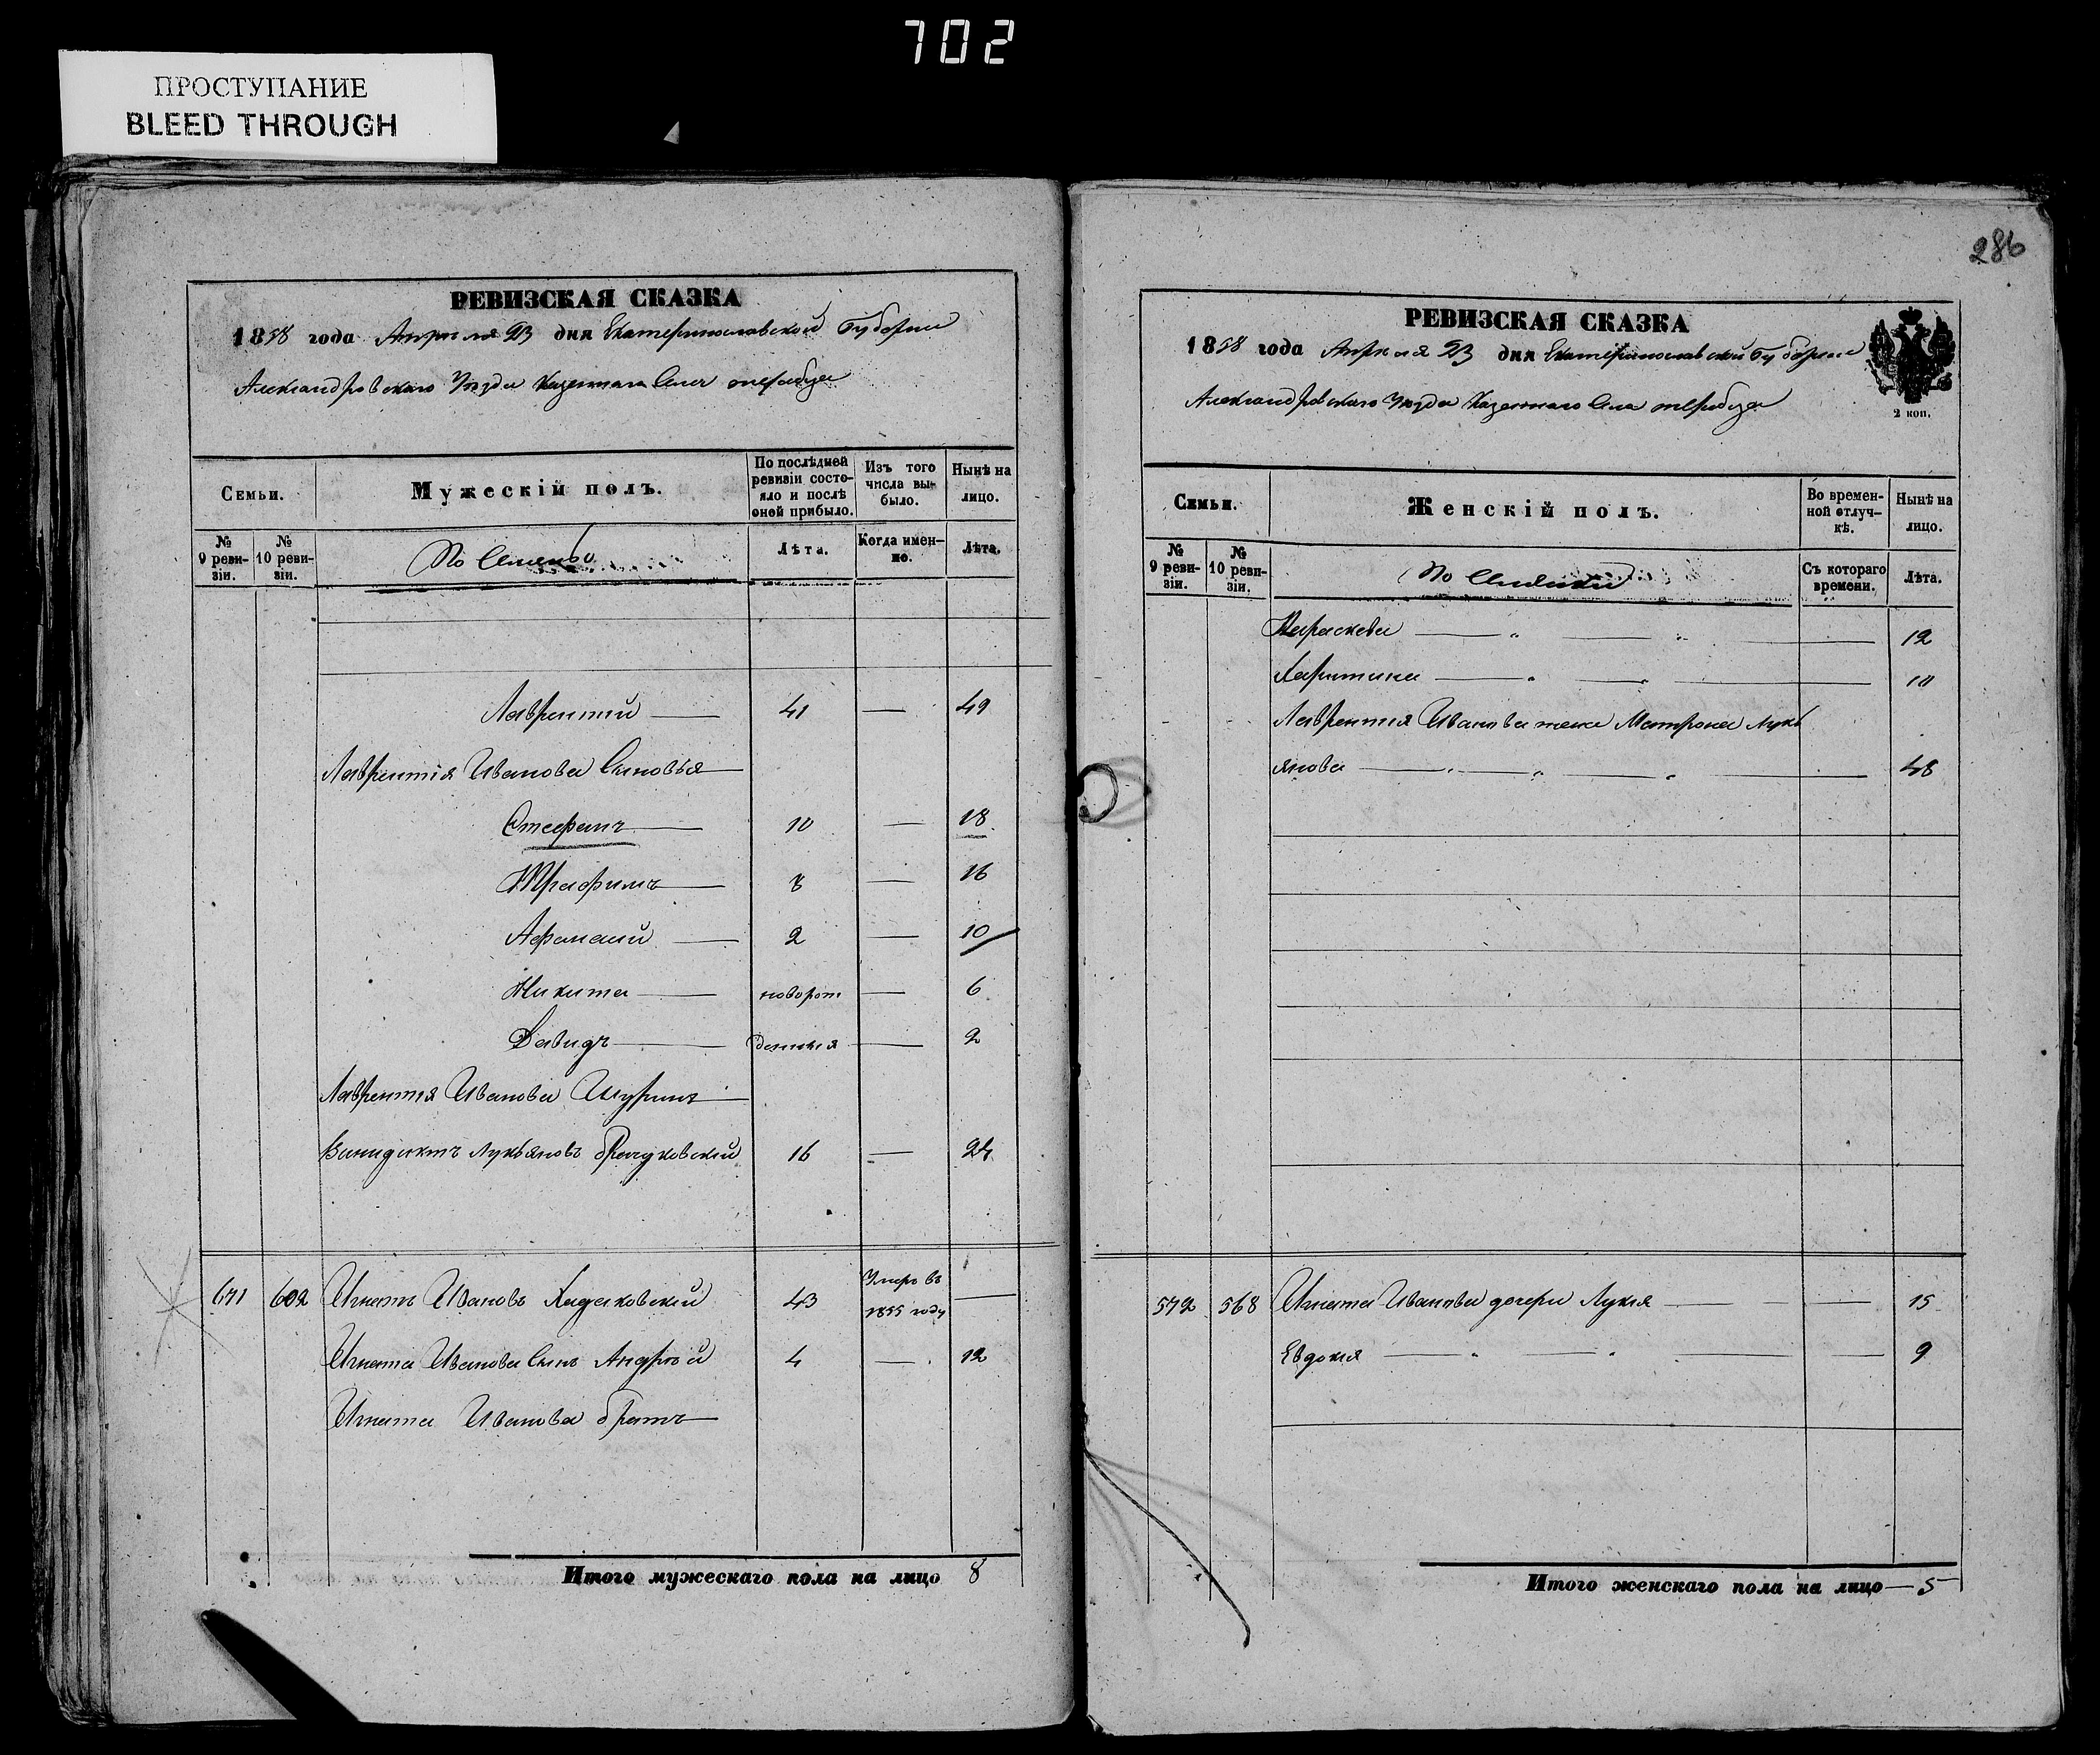 702
ПРОСТУПАНИЕ
BLEED THROUGH
РЕВИЗСКАЯ СКАЗКА
1858 года Апреля 23 дня Екатеринославской Губернии
Александровскаго Уезда Казеннаго Села
Семьи.
Мужескій полъ.
По послѣдней ревизіи состояло и послѣ оней прибыло.
Изъ того числа выбыло.
Нынѣ на лицо.
№ 9 ревизіи.
№ 10 ревизіи.
Лѣта.
Когда именно.
Лѣта.
Лаврентий — 41 — 49
Лаврентія Иванова Сыновья —
Стефанъ — 10 — 18
Трофимъ — 8 — 16
Афанасий — 2 — 10
Никита — новорож — 6
Давидъ — денныя — 2
Лаврентія Иванова Шуринъ —
Венидиктъ Лукьяновъ 16 — 24
671 602 Игнатъ Ивановъ 43 Умеръ въ 1855 году —
Игната Иванова Сынъ Андрѣй 4 — 12
Игната Иванова братъ —
Итого мужескаго пола на лицо 8
286
РЕВИЗСКАЯ СКАЗКА
1858 года Апреля 23 дня Екатеринославской Губернии
Александровскаго Уезда Казеннаго Села
2 коп.
Семьи.
Женскій полъ.
Во временной отлучкѣ.
Нынѣ на лицо.
№ 9 ревизіи.
№ 10 ревизіи.
Съ котораго времени.
Лѣта.
Параскева — " — " — 12
Харитина — " — " — 10
Лаврентія Иванова жена Матрона Лукь
янова — " — " — " — 48
572 568 Игната Иванова дочери Лукія — — 15
Евдокія — " — " — 9
Итого женскаго пола на лицо — 5